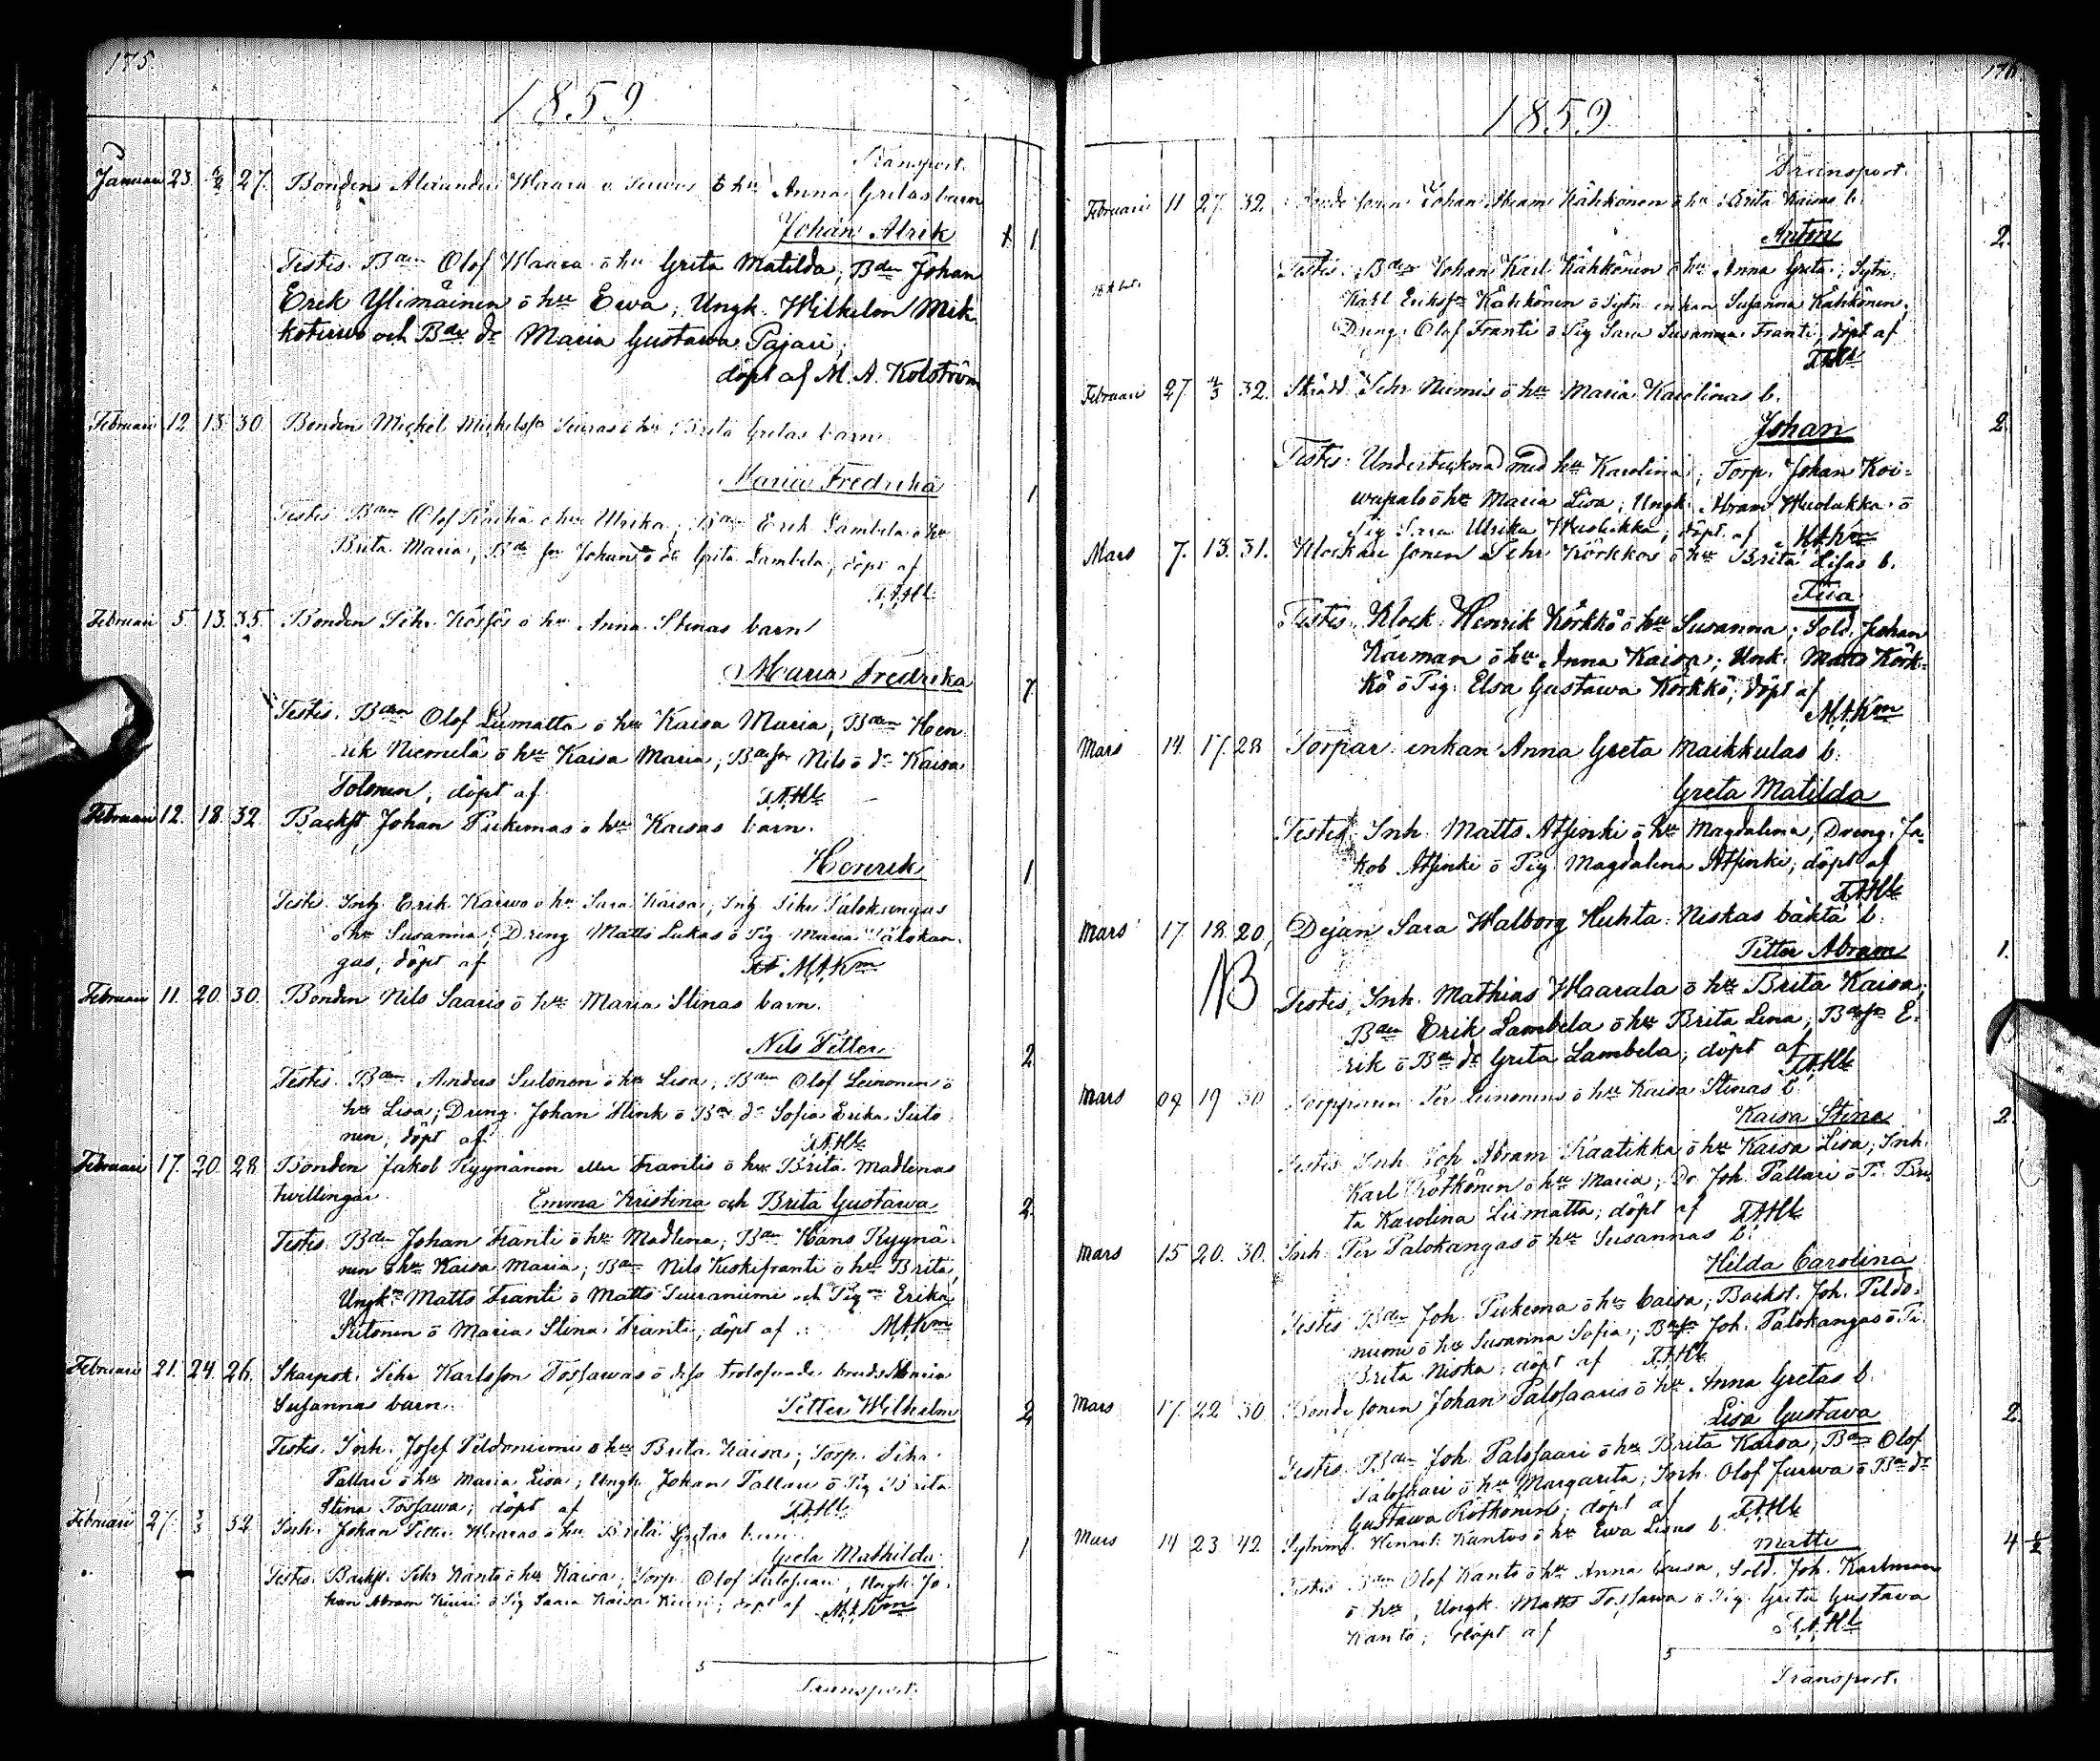 175.
1859
Transport.
Januari 23. 4/2 27. Bonden Alexander Waara ō hu Anna Gretas barn
Johan Alrik 1
Testis. Bden Olof Waara ō hu Greta Matilda; Bden Johan
Erik Ylimäinen ō hu Ewa; Ungk. Wilhelm Mik
koterwo och Bde dr Maria Gustawa Pajari;
döpt af M. A. Kolström
Februari 12 13. 30. Bonden Michel Michelsson ō hu Brita Gretas barn
Maria Fredrika 1
Testis. Bden Olof ō hu Ulrika; Bden Erik Lambela ō hu
Brita Maria; Bde Johan ō dr Greta Lambela; döpt af
F.A.Hl.
Februari 5 13. 35. Bonden Pehr ō hu Anna Stinas barn
Maria Fredrika 7
Testis. Bden Olof Liimatta ō hu Kaisa Maria; Bden Hen
rik Niemelä ō hu Kaisa Maria; Bde Nils ō dr Kaisa
Tolonen; döpt af F.A.Hl.
Februari 12. 18. 32. Backst Johan Pukemas ō hu Kaisas barn.
Henrik 1
Testis. Inh. Erik Karwo ō hu Sara Kaisa; Inh. Pehr Palokangas
ō hu Susanna; Dreng Matts Lukas ō Pig Maria Palokan
gas; döpt af M.A.Km
Februari 11. 20. 30. Bonden Nils Saaris ō hu Maria Stinas barn.
Nils Petter 2
Testis. Bden Anders Sulonen ō hu Lisa; Bden Olof Leinonen ō
hu Lisa; Dreng. Johan Flink ō Bde dr Sofia Erika
nen; döpt af F.A.Hl.
Februari 17. 20. 28. Bonden Jakob Kyynänen eller Frantis ō hu Brita Madlenas
twillingar. Emma Kristina och Brita Gustawa 2.
Testis. Bden Johan Franti ō hu Madlena; Bden Hans Kyynä
nen ō hu Kaisa Maria; Bden Nils Keskifranti ō hu Brita,
Ungk Matts Franti ō Matts Suuraniemi och Pig Erika
ō Maria Stina Franti; döpt af M.A.Km
Februari 21. 24. 26. Pehr Karlsson Tossawas ō dess trolofwade bruds Maria
Susannas barn. Petter Wilhelm 2
Testis. Inh. Josef Peldoniemi ō hu Brita Kaisa; Torp. Pehr
Pallari ō hu Maria Lisa; Ungk Johan Pallari ō Pig Brita
Stina Tossawa; döpt af F.A.Hl.
Februari 27. 3/3 32 Inh. Johan Petter ō hu Brita Gretas barn.
Greta Mathilda 1
Testis. Backst. Pehr Kanto ō hu Kaisa; Torp. Olof Ungk. Jo
han Abram Kiuru ō Pig Kaisa döpt af M.A.Km
5
Transport.
176.
1859
Transport.
Februari 11 27. 32. Bonde sonen Johan Abram Kähkönen ō hu Brita Kaisas b.
Anton 2.
Testis. Bden Johan Karl Kähkönen ō hu Anna Greta; Sytn.
Karl Eriksson Kähkönen ō Sytn enkan Susanna Kähkönen;
Dreng. Olof Franti ō Pig Sara Susanna Franti; döpt af
F.A.Hl
Februari 27. 4/3 32. Pehr Niemis ō hu Maria Karolinas b.
Johan 2.
Testis: Undertecknad med hu Karolina; Torp. Johan Koi-
wupalo ō hu Maria Lisa; Ungk. Abram Wuolukka ō
Pig Sara Ulrika Wuolukka; döpt af M.A.Km
Mars 7. 13. 31. Klockare sonen Pehr Körkkos ō hu Brita Lisas b.
Fiia
Testis. Klock Henrik Körkkö ō hu Susanna; Sold. Johan
Karman ō hu Anna Kaisa; Unk. Matts Körk-
kö ō Pig. Elsa Gustawa Körkkö; döpt af
M.A.Km
Mars 14. 17. 28 Torpar enkan Anna Greta Maikkulas b.
Greta Matilda
Testes. Inh. Matts Atsinki ō hu Magdalena; Dreng. Ja-
kob Atsinki ō Pig. Magdalena Atsinki; döpt af
F.A.Hl.
Mars 17. 18. 20, Dejan Sara Walborg Huhta-Niskas oäkta b.
Petter Abram 1.
NB
Testis. Inh. Mathias Waarala ō hu Brita Kaisa;
Bden Erik Lambela ō hu Brita Lena; Bde E.
rik ō Bde dr Greta Lambela; döpt af F.A.Hl.
Mars 09 19 30 Per Leinonens ō hu Kaisa Stinas b.
Kaisa Stina 2.
Testis. Inh. Joh Abram Raatikka ō hu Kaisa Lisa; Inh.
Karl Rötkönen ō hu Maria; Dr Joh. Pallari ō Pi. Bri
ta Karolina Liimatta; döpt af F.A.Hl.
Mars 15 20. 30. Inh. Per Palokangas ō hu Susannas b.
Hilda Carolina
Testis. Bden Joh. Pukema ō hu Caisa; Backst. Joh. Peldo.
niemi ō hu Susanna Sofia; Bde Joh. Palokangas ō Pi.
Brita Niska; döpt af F.A.Hl.
Mars 17. 22 30 Bonde sonen Johan Palosaaris ō hu Anna Gretas b.
Lisa Gustava 2.
Testis. Bden Joh. Palosaari ō hu Brita Kaisa; Bden Olof
Palosaari ō hu Margareta; Inh. Olof Juswa ō Bde dr
Gustawa Rötkönen; döpt af F.A.Hl.
Mars 14 23. 42 Sytnm. Henrik Kantos ō hu Ewa Lisas b.
Matte 4
Testis. Bden Olof Kanto ō hu Anna Caisa, Sold. Joh. Karlman
ō hu, Ungk. Matts Tossawa ō Pig. Greta Gustava
Kanto; döpt af F.A.Hl
5
Transport.